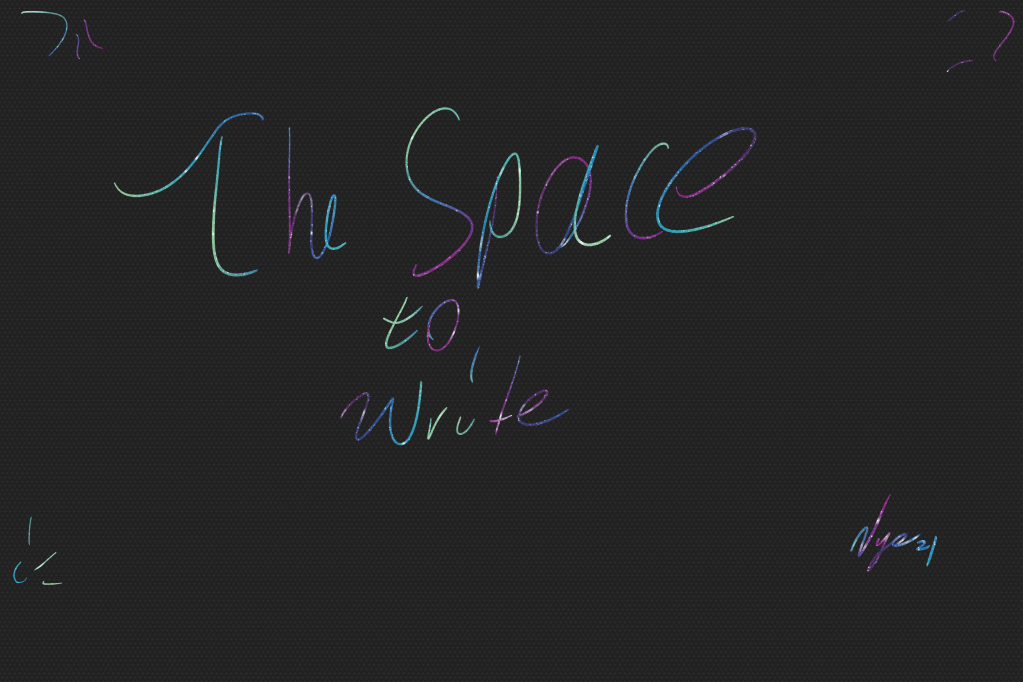 The Space
to
Write